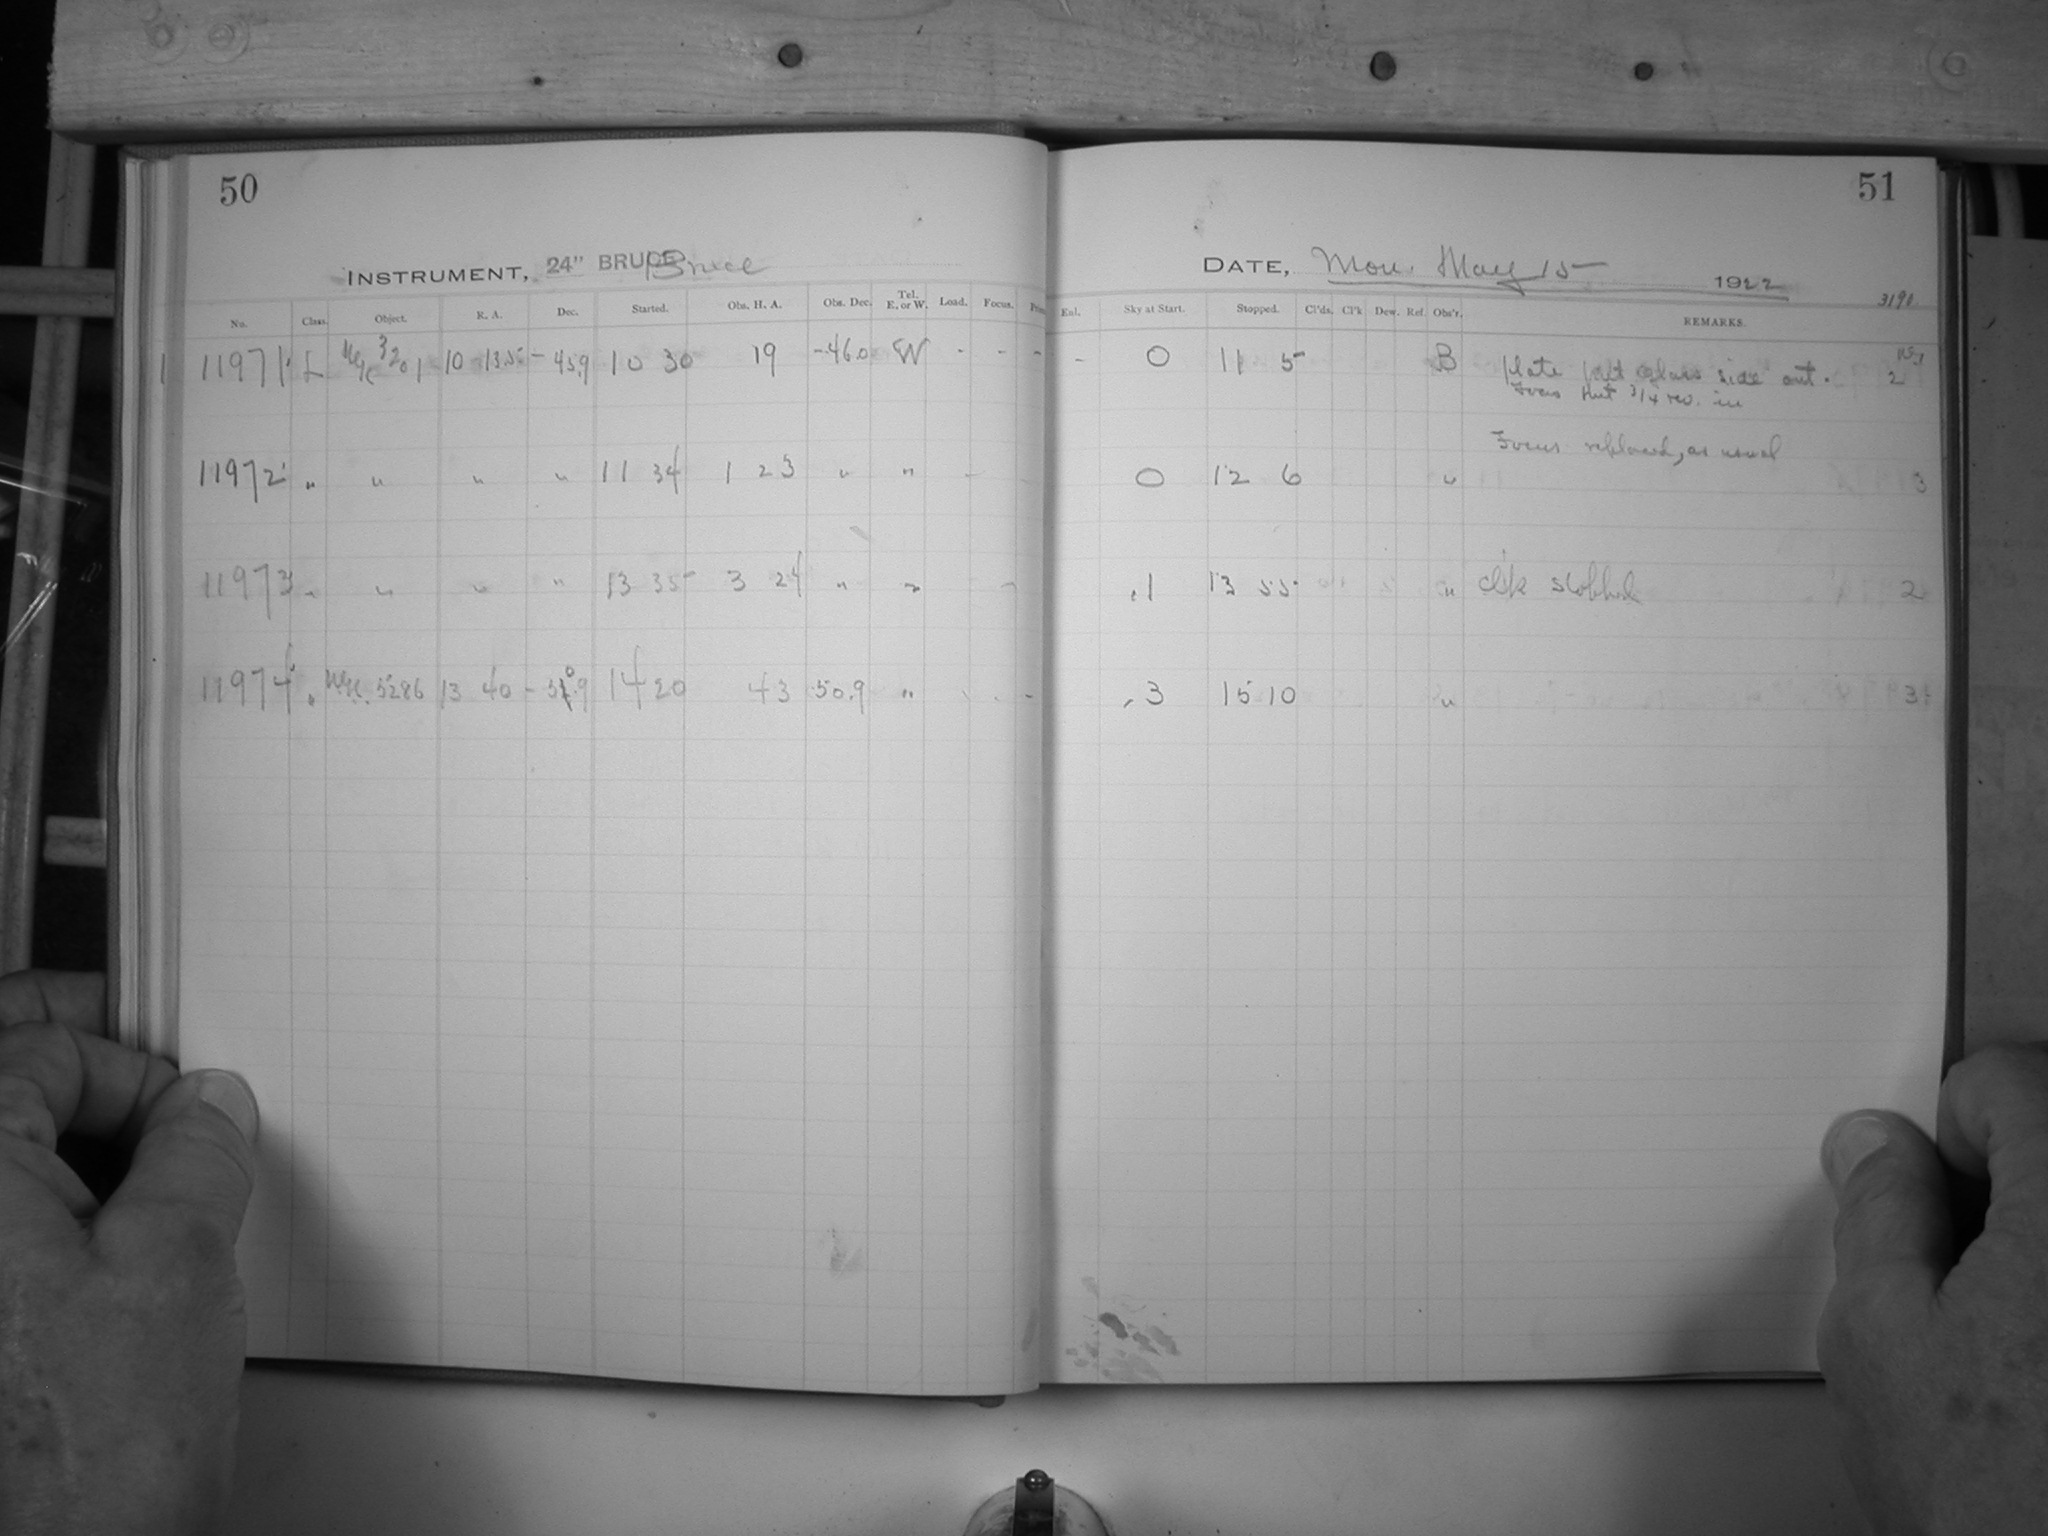 50
51
INSTRUMENT, 24" BRUCE Bruce
DATE, Mon. May 15 1922
3190
No. Class. Object. R. A. Dec. Started. Obs. H. A. Obs. Dec. Tel. E. or W. Load. Focus.
Enl. Sky at Start. Stopped. Cl'ds. Cl'k Dew. Ref. Obs'r. REMARKS.
1 11971 L NGC 3201 10 13.5 - 45.9 10 30 19 -46.0 W - - - - 0 11 5 B plate put glass side out. 2
Focus put 3/4 rev. in
Focus replaced, as usual
11972 " " " " 11 34 1 23 " " - 0 12 6 " 3
11973 " " " " 13 35 3 24 " " - .1 13 55 " clk stopped 2
11974 " NGC. 5286 13 40 - 50.9 14 20 43 50.9 " - .3 15 10 " 3